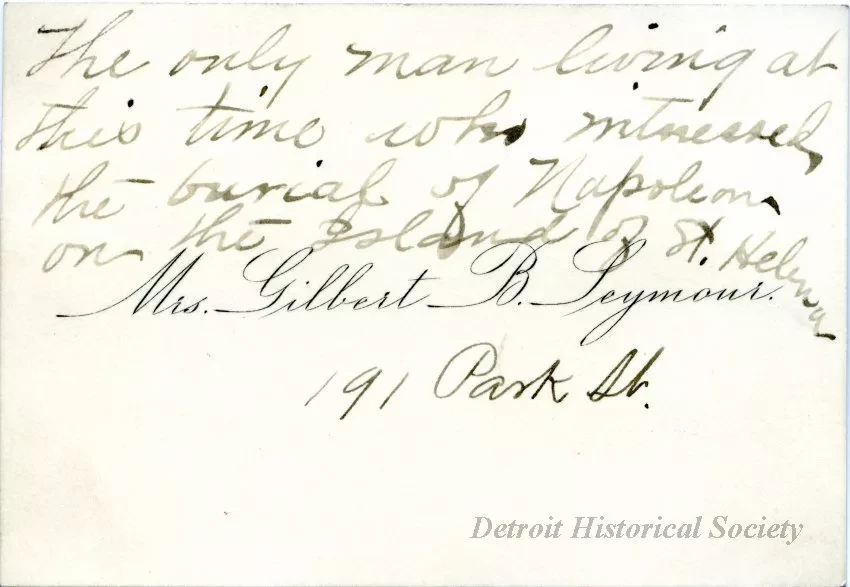 The only man living at
this time who witnessed,
the burial of Napoleon,
on the Island of St. Helena
Mrs. Gilbert B. Seymour.
191 Park St.
Detroit Historical Society